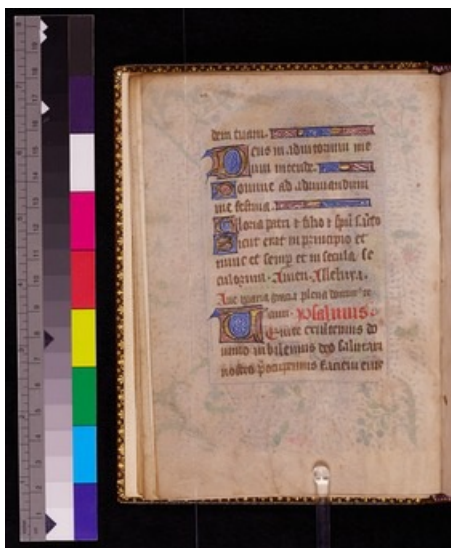 dem tuam.
Deus in adiutorium me
um intende.
Domine ad adiuuandum
me festina.
Gloria patri et filio et spui scto
Sicut erat in principio et
nunc et semp et in secula se
culorum. Amen. Alleluya.
Aue maria gracia plena dominus te
cum. Psalmus.
Uenite exultemus do
mino iubilemus deo salutari
nostro pocupemus faciem eius